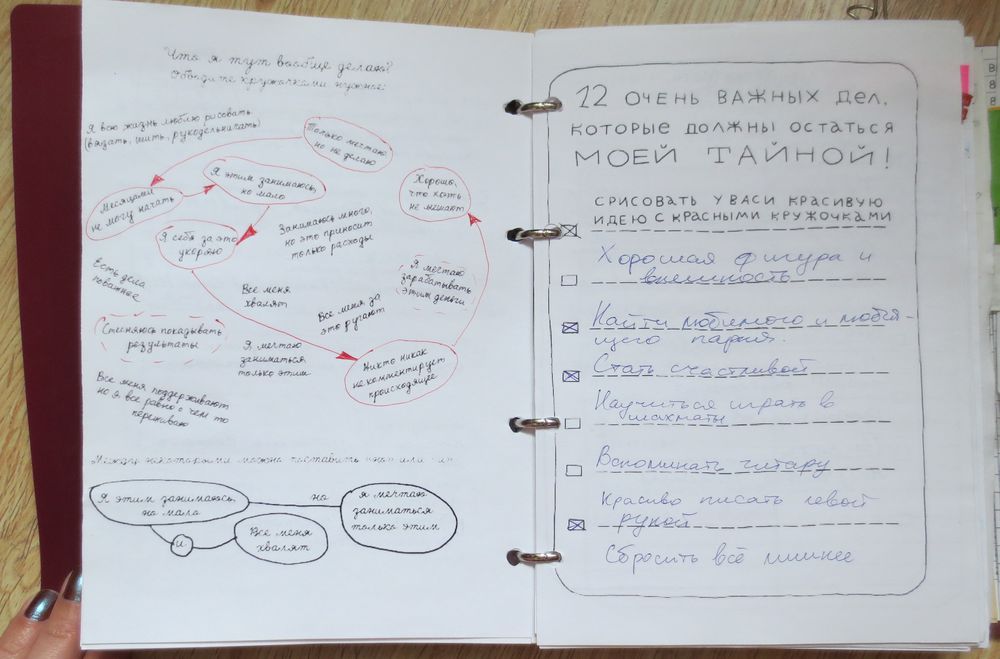 Что я тут вообще делаю?
Обведите кружочками нужное:
Я всю жизнь люблю рисовать
(вязать, шить, рукодельничать)
Только мечтаю
но не делаю
Я этим занимаюсь,
но мало
Хорошо,
что хоть
не мешают
Месяцами
не могу начать
Я себя за это
укоряю
Занимаюсь много,
но это приносит
только расходы
Есть дела
поважнее
Все меня
хвалят
Все меня за
это ругают
Я мечтаю
зарабатывать
этим деньги
Стесняюсь показывать
результаты
Я мечтаю
заниматься
только этим
Никто никак
не комментирует
происходящее
Все меня поддерживают
но я все равно о чем то
переживаю
Между некоторыми можно поставить «но» или «и»
Я этим занимаюсь,
но мало
но
я мечтаю
заниматься
только этим
и
Все меня
хвалят
12 ОЧЕНЬ ВАЖНЫХ ДЕЛ,
КОТОРЫЕ ДОЛЖНЫ ОСТАТЬСЯ
МОЕЙ ТАЙНОЙ!
СРИСОВАТЬ У ВАСИ КРАСИВУЮ
ИДЕЮ С КРАСНЫМИ КРУЖОЧКАМИ
Хорошая фигура и
внешность
Найти любимого и любя-
щего парня.
Стать счастливой
Научиться играть в
шахматы
Вспоминать гитару
Красиво писать левой
рукой
Сбросить всё лишнее
8
8
8